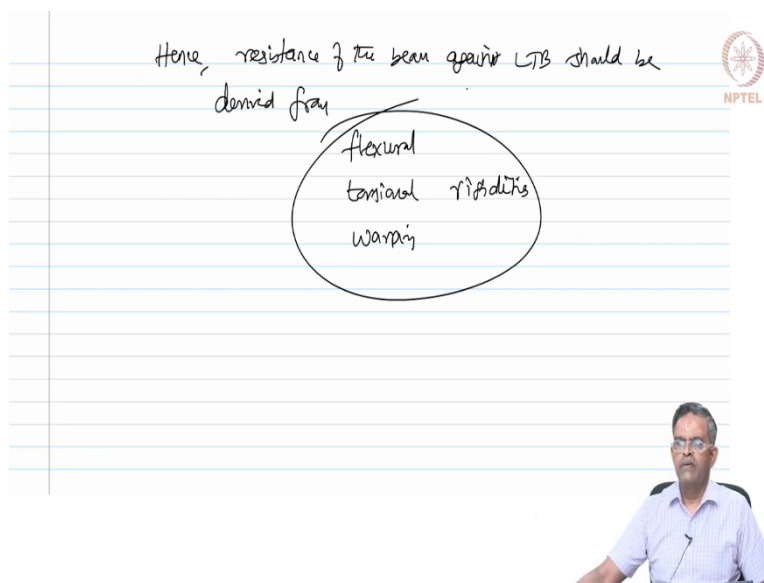 Hence, resistance of the beam against LTB should be
derived from
flexural
torsional rigidities
warping
NPTEL